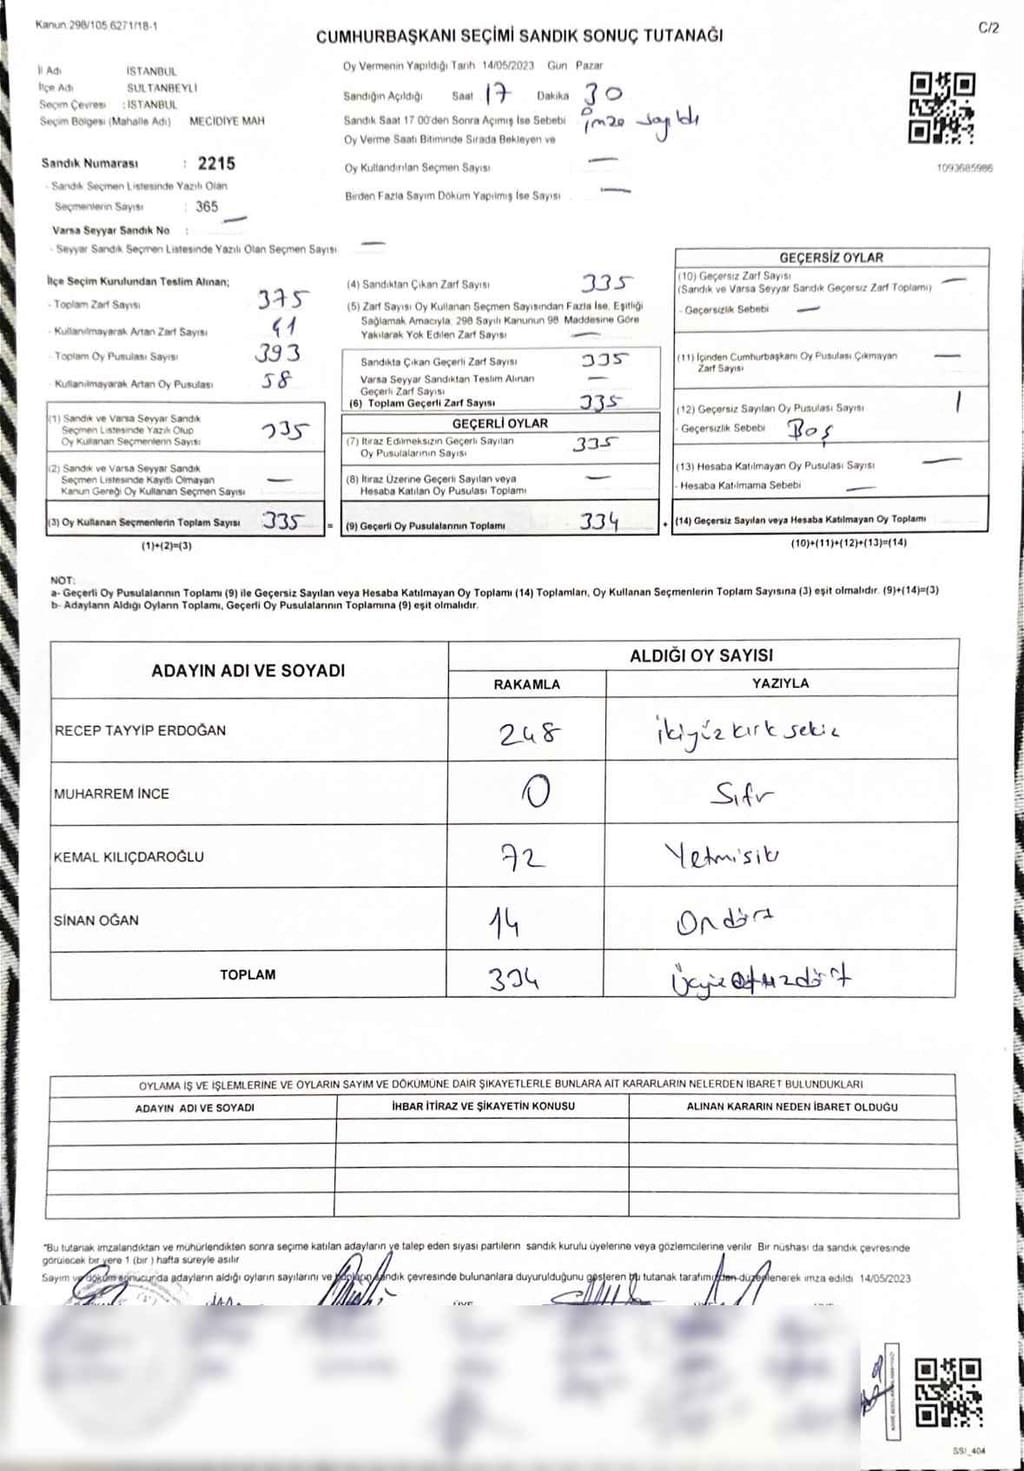 Kanun:298/105 6271/18-1
C/2
CUMHURBAŞKANI SEÇİMİ SANDIK SONUÇ TUTANAĞI
İl Adı İSTANBUL
İlçe Adı SULTANBEYLİ
Seçim Çevresi : İSTANBUL
Seçim Bölgesi (Mahalle Adı) MECİDİYE MAH
Sandık Numarası : 2215
- Sandık Seçmen Listesinde Yazılı Olan
Seçmenlerin Sayısı : 365
Varsa Seyyar Sandık No : —
- Seyyar Sandık Seçmen Listesinde Yazılı Olan Seçmen Sayısı —
Oy Vermenin Yapıldığı Tarih 14/05/2023 Gün Pazar
Sandığın Açıldığı Saat 17 Dakika 30
Sandık Saat 17 00'den Sonra Açımış İse Sebebi imza sayıldı
Oy Verme Saati Bitiminde Sırada Bekleyen ve
Oy Kullandırılan Seçmen Sayısı —
Birden Fazla Sayım Döküm Yapılmış İse Sayısı —
1093685986
İlçe Seçim Kurulundan Teslim Alınan;
- Toplam Zarf Sayısı 375
- Kullanılmayarak Artan Zarf Sayısı 41
- Toplam Oy Pusulası Sayısı 393
- Kullanılmayarak Artan Oy Pusulası 58
(1) Sandık ve Varsa Seyyar Sandık
Seçmen Listesinde Yazılı Olup
Oy Kullanan Seçmenlerin Sayısı 335
(2) Sandık ve Varsa Seyyar Sandık
Seçmen Listesinde Kayıtlı Olmayan
Kanun Gereği Oy Kullanan Seçmen Sayısı —
(3) Oy Kullanan Seçmenlerin Toplam Sayısı 335 =
(1)+(2)=(3)
(4) Sandıktan Çıkan Zarf Sayısı 335
(5) Zarf Sayısı Oy Kullanan Seçmen Sayısından Fazla İse, Eşitliği
Sağlamak Amacıyla, 298 Sayılı Kanunun 98. Maddesine Göre
Yakılarak Yok Edilen Zarf Sayısı —
Sandıkta Çıkan Geçerli Zarf Sayısı 335
Varsa Seyyar Sandıktan Teslim Alınan
Geçerli Zarf Sayısı —
(6) Toplam Geçerli Zarf Sayısı 335
GEÇERLİ OYLAR
(7) İtiraz Edilmeksizin Geçerli Sayılan
Oy Pusulalarının Sayısı 335
(8) İtiraz Üzerine Geçerli Sayılan veya
Hesaba Katılan Oy Pusulası Toplamı —
(9) Geçerli Oy Pusulalarının Toplamı 334 +
GEÇERSİZ OYLAR
(10) Geçersiz Zarf Sayısı
(Sandık ve Varsa Seyyar Sandık Geçersiz Zarf Toplamı) —
- Geçersizlik Sebebi —
(11) İçinden Cumhurbaşkanı Oy Pusulası Çıkmayan
Zarf Sayısı —
(12) Geçersiz Sayılan Oy Pusulası Sayısı 1
- Geçersizlik Sebebi Boş
(13) Hesaba Katılmayan Oy Pusulası Sayısı —
- Hesaba Katılmama Sebebi —
(14) Geçersiz Sayılan veya Hesaba Katılmayan Oy Toplamı
(10)+(11)+(12)+(13)=(14)
NOT:
a- Geçerli Oy Pusulalarının Toplamı (9) ile Geçersiz Sayılan veya Hesaba Katılmayan Oy Toplamı (14) Toplamları, Oy Kullanan Seçmenlerin Toplam Sayısına (3) eşit olmalıdır. (9)+(14)=(3)
b- Adayların Aldığı Oyların Toplamı, Geçerli Oy Pusulalarının Toplamına (9) eşit olmalıdır.
ADAYIN ADI VE SOYADI
ALDIĞI OY SAYISI
RAKAMLA YAZIYLA
RECEP TAYYİP ERDOĞAN 248 ikiyüz kırk sekiz
MUHARREM İNCE 0 Sıfır
KEMAL KILIÇDAROĞLU 72 Yetmişiki
SİNAN OĞAN 14 Ondört
TOPLAM 334 Üçyüz otuzdört
OYLAMA İŞ VE İŞLEMLERİNE VE OYLARIN SAYIM VE DÖKÜMÜNE DAİR ŞİKAYETLERLE BUNLARA AİT KARARLARIN NELERDEN İBARET BULUNDUKLARI
ADAYIN ADI VE SOYADI İHBAR İTİRAZ VE ŞİKAYETİN KONUSU ALINAN KARARIN NEDEN İBARET OLDUĞU
*Bu tutanak imzalandıktan ve mühürlendikten sonra seçime katılan adayların ve talep eden siyasi partilerin sandık kurulu üyelerine veya gözlemcilerine verilir. Bir nüshası da sandık çevresinde
görülecek bir yere 1 (bir ) hafta süreyle asılır
Sayım ve döküm sonucunda adayların aldığı oyların sayılarını ve sandık çevresinde bulunanlara duyurulduğunu gösteren bu tutanak tarafımızdan düzenlenerek imza edildi 14/05/2023
SSI_404